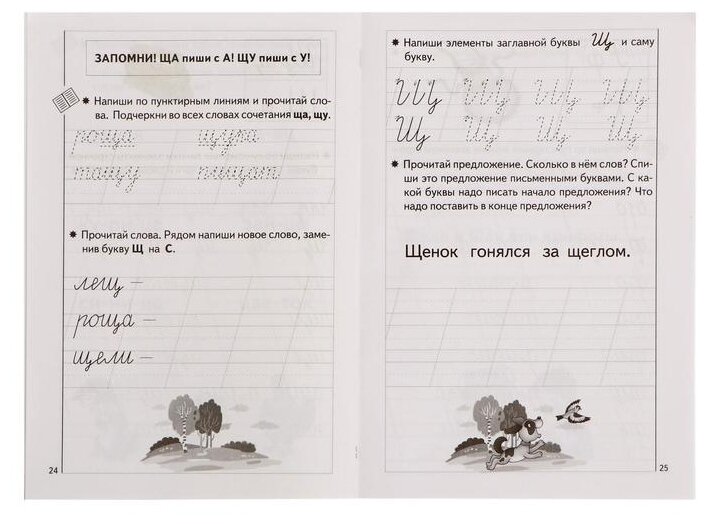 ЗАПОМНИ! ЩА пиши с А! ЩУ пиши с У!
✷ Напиши по пунктирным линиям и прочитай сло-
ва. Подчеркни во всех словах сочетания ща, щу.
роща щука
тащу пищат
✷ Прочитай слова. Рядом напиши новое слово, заме-
нив букву Щ на С.
лещ –
роща –
щели –
24
✷ Напиши элементы заглавной буквы Щ и саму
букву.
Щ Щ Щ Щ
Щ Щ Щ Щ
✷ Прочитай предложение. Сколько в нём слов? Спи-
ши это предложение письменными буквами. С ка-
кой буквы надо писать начало предложения? Что
надо поставить в конце предложения?
Щенок гонялся за щеглом.
25